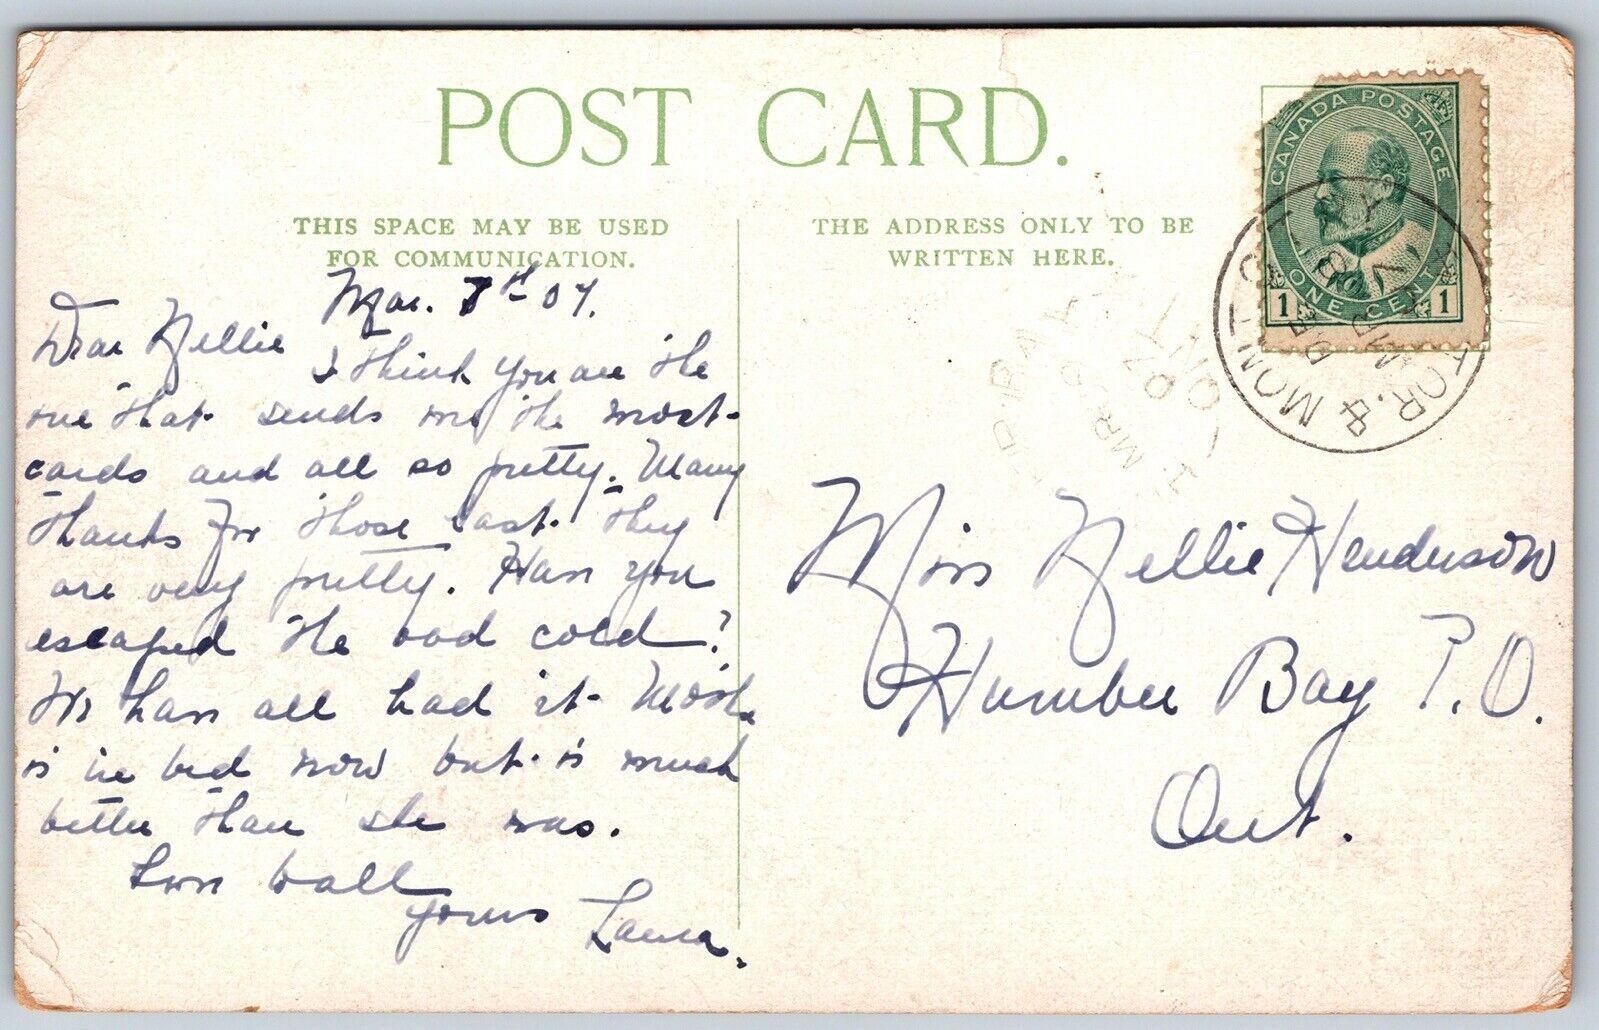 POST CARD.
THIS SPACE MAY BE USED
FOR COMMUNICATION.
THE ADDRESS ONLY TO BE
WRITTEN HERE.
CANADA POSTAGE
1 ONE CENT 1
TOR. & MONT
MR 8
07
MR
07
ONT
Mar. 7th 07.
Dear Nellie
I think you are the
one that sends me the most
cards and all so pretty. Many
thanks for those last. They
are very pretty. Have you
escaped the bad cold?
We have all had it. Mother
is in bed now but is much
better than she was.
Love to all
yours Laura.
Miss Nellie Henderson
Humber Bay P.O.
Ont.